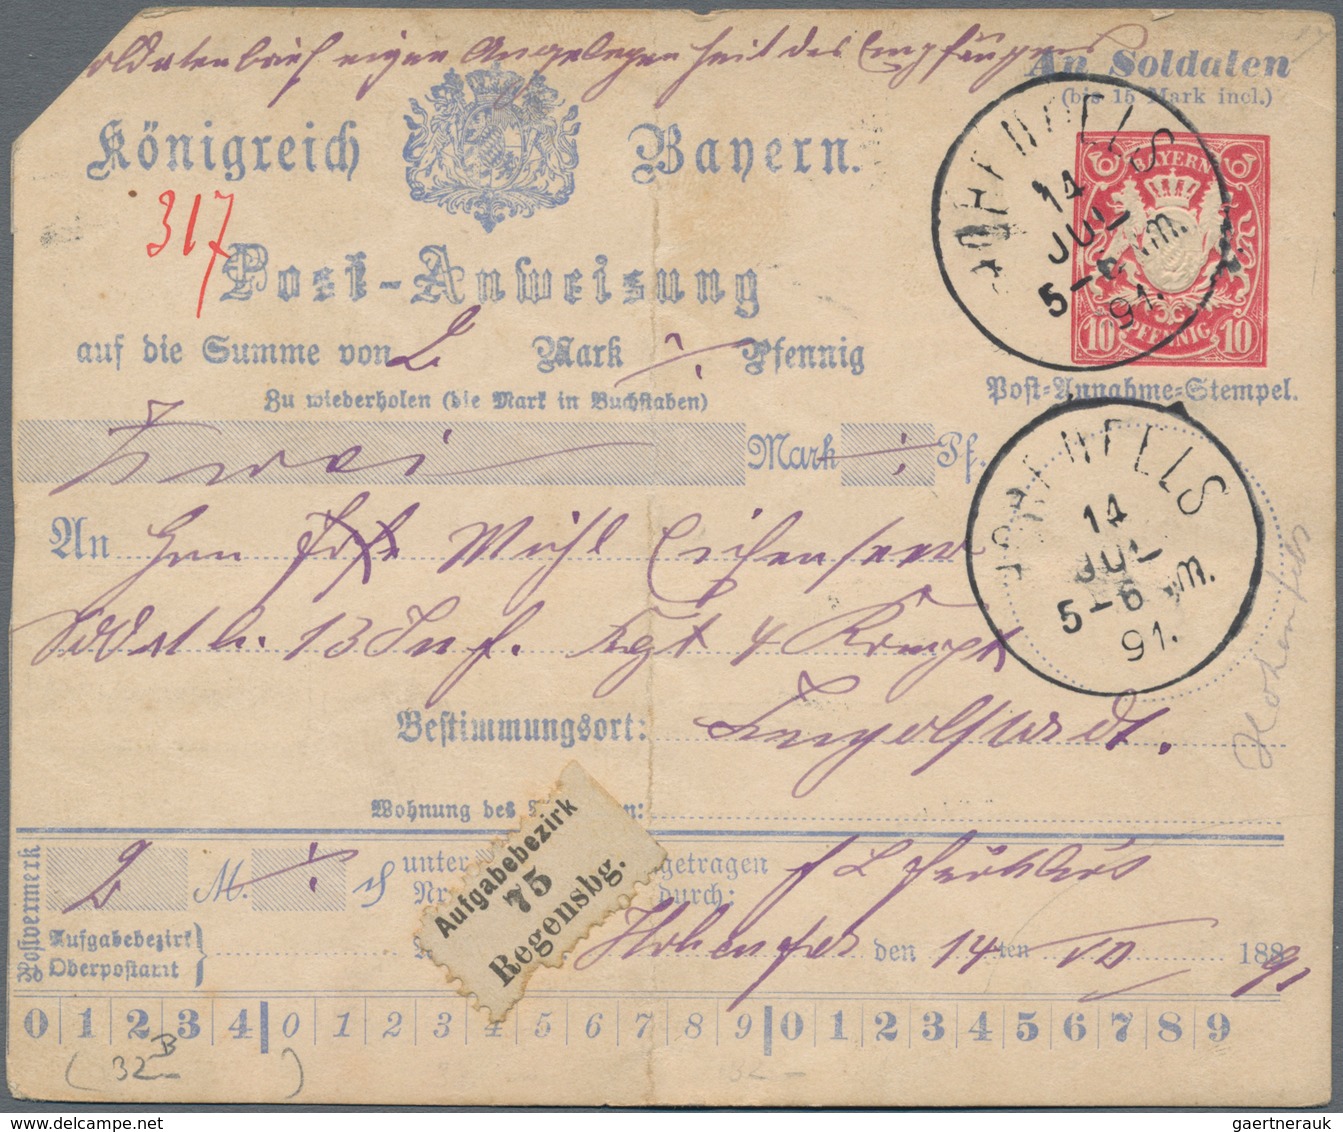 Soldatenbrief eigene Angelegenheit des Empfängers
An Soldaten
(bis 15 Mark incl.)
Königreich Bayern.
BAYERN
10 PFENNIG 10
317
HOHENFELS
14
JUL
5-6 Nm.
91.
Post-Anweisung
auf die Summe von 2 Mark Pfennig
Zu wiederholen (die Mark in Buchstaben)
Post-Annahme-Stempel.
Zwei Mark Pf.
HOHENFELS
14
JUL
5-6 Nm.
91.
An Herrn Michl Eichenseer
Soldat b. 13 Inf. Rgt 4 Komp
Hohenfels
Bestimmungsort: Ingolstadt.
Wohnung des n:
Postvermerk
2 M. unter Nr. getragen durch:
Aufgabebezirk
75
Regensbg.
Aufgabebezirk
Oberpostamt
Hohenfels den 14ten VII 1891
0 1 2 3 4 0 1 2 3 4 5 6 7 8 9 0 1 2 3 4 5 6 7 8 9
(32 B)
gaertnerauk